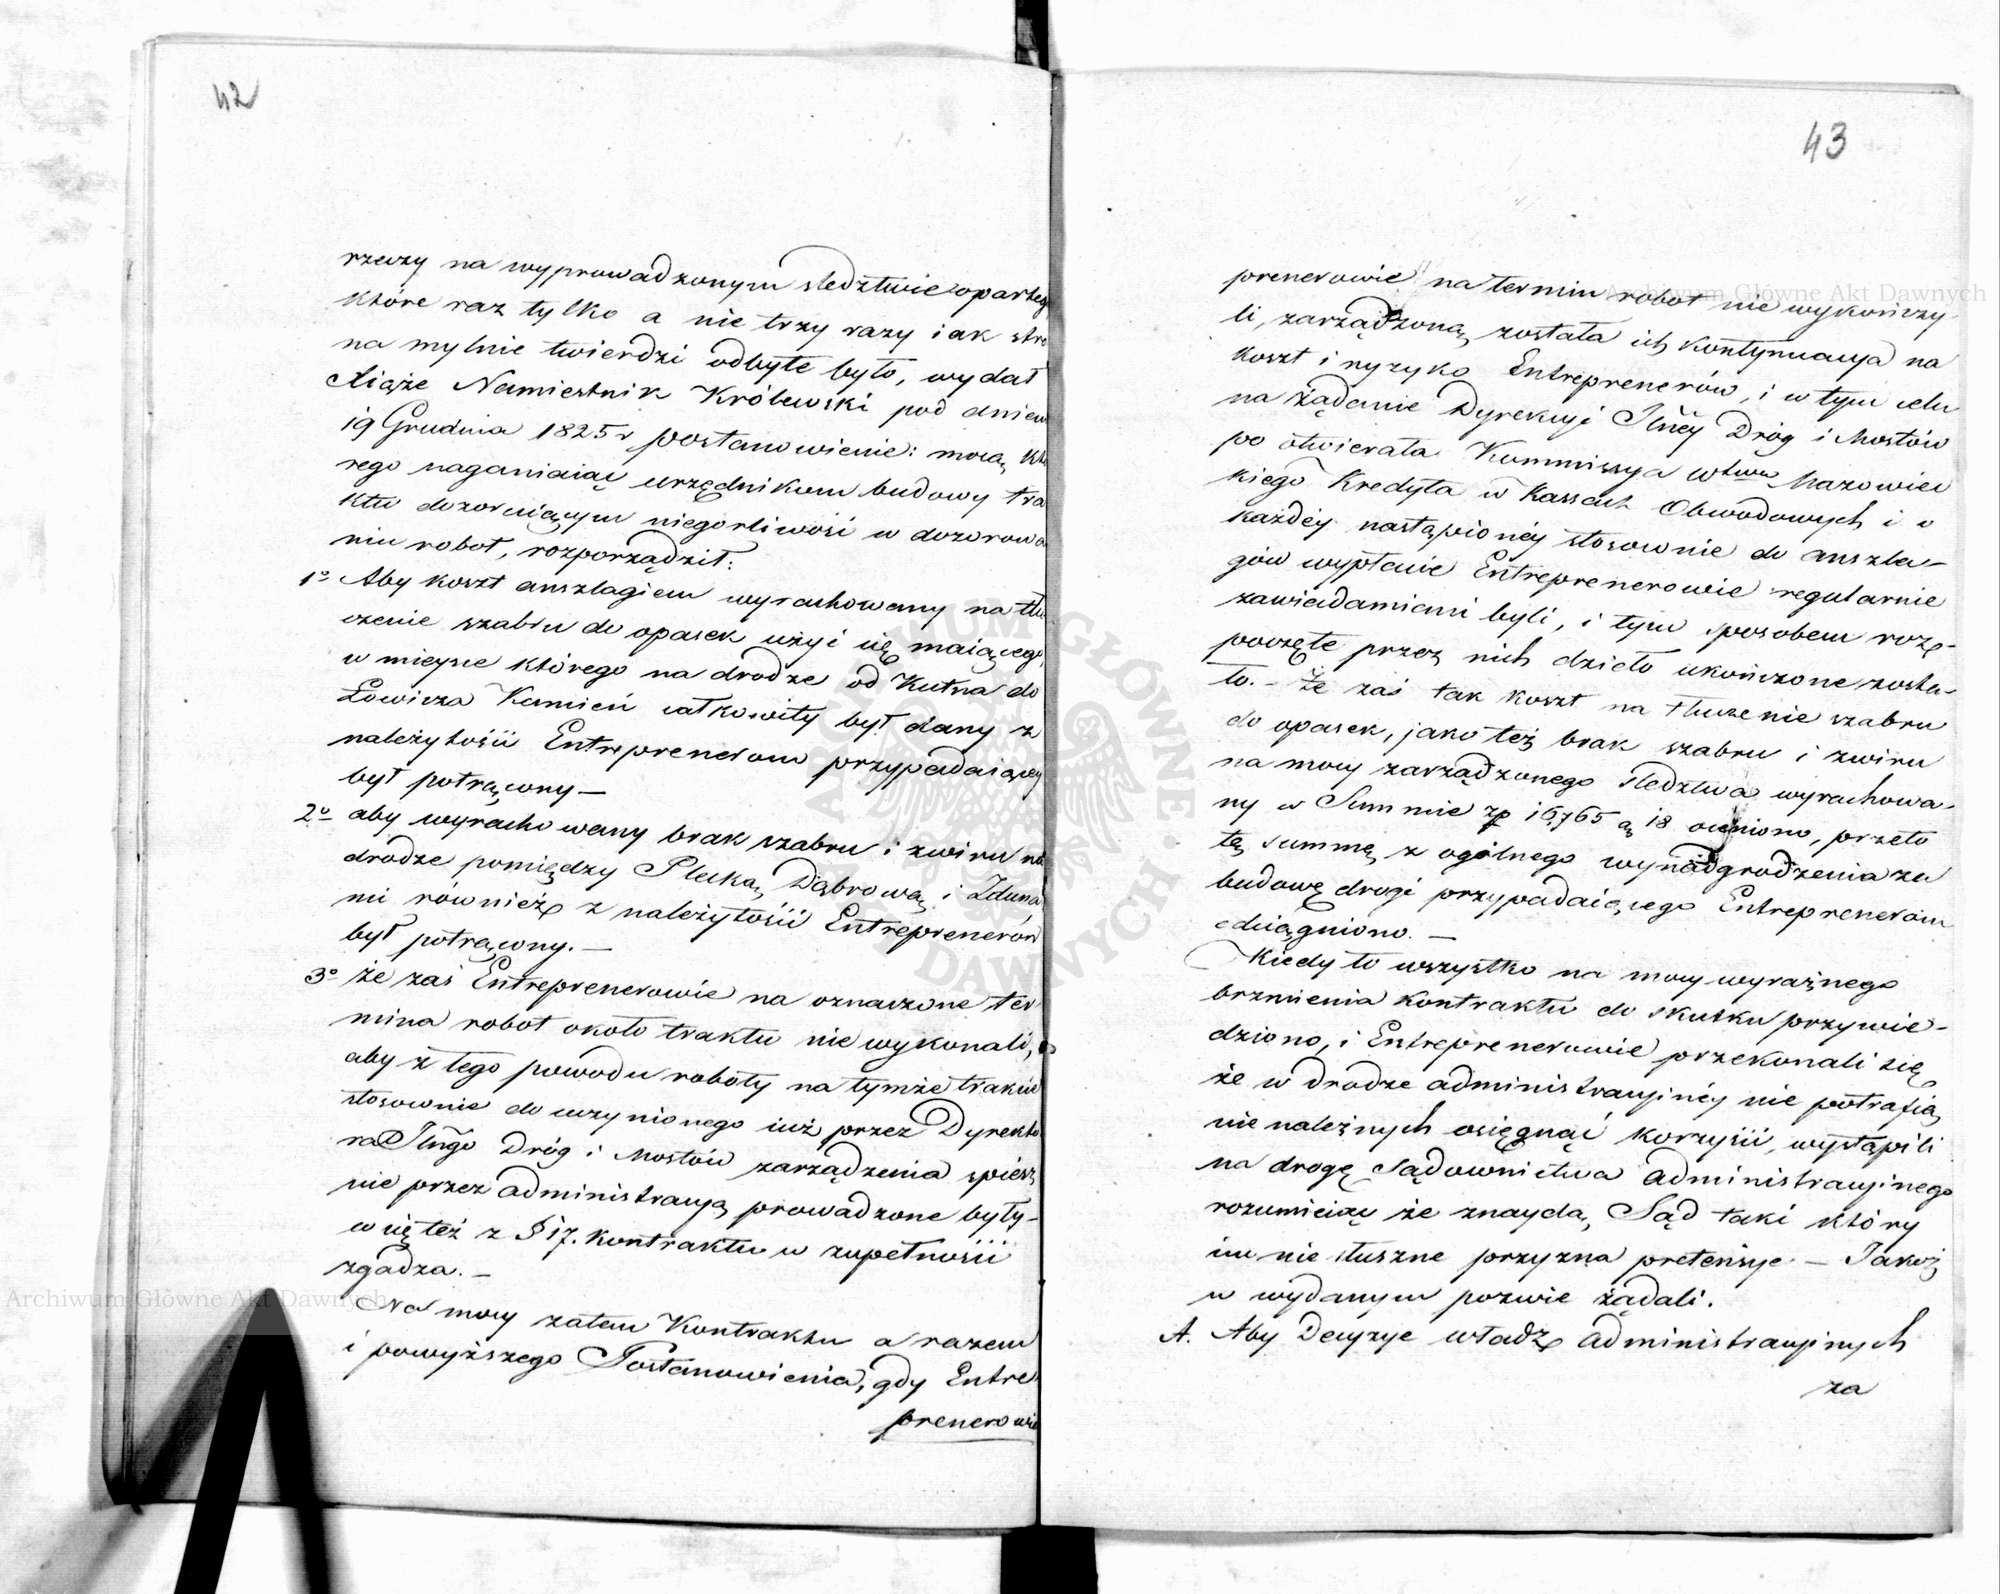 42
rzeczy na wyprowadzonym sledztwie opartey
które raz tylko a nie trzy razy iak stro
na mylnie twierdzi odbyte było, wydał
Xiąże Namiestnik Królewski pod dniem
19 Grudnia 1825 r postanowienie: mocą któ
rego naganiaiąc urzędnikom budowy tra
ktu dozoruiącym niegorliwość w dozorowa
niu robot, rozporządził:
1o Aby koszt anszlagiem wyrachowany na tłu
czenie szabru do opasek użyć się maiącego,
w mieysce którego na drodze od Kutna do
Łowicza Kamień całkowity był dany z
należytości Entreprenerom przypadaiącey
był potrącony —
2o aby wyrachowany brak szabru i zwiru na
drodze pomiędzy Plecką Dąbrową i Zduna
mi również z należytości Entreprenerów
był potrącony. —
3o że zaś Entreprenerowie na oznaczone ter
mina robot około traktu nie wykonali,
aby z tego powodu roboty na tymże trakcie
stosownie do uczynionego iuż przez Dyrekto
ra Jlngo Dróg i Mostów zarządzenia spiesz
nie przez administracyą prowadzone były –
co się też z § 17. Kontraktu w zupełności
zgadza. —
Na mocy zatem Kontraktu a razem
i powyższego Postanowienia, gdy Entre
prenerowie
43
prenerowie na termin robot nie wykończy
li, zarządzoną została ich kontynuacya na
koszt i ryzyko Entreprenerów, i w tym celu
na żądanie Dyrekcyi Jlney Dróg i Mostów
po otwierała Kommissya Wtwa Mazowiec
kiego Kredyta w Kassach Obwodowych i o
każdéy nastąpionéy stosownie do anszla-
gów wypłacie Entreprenerowie regularnie
zawiadamiani byli, i tym sposobem rozp-
poczęte przez nich dzieło ukończone zosta-
ło. – Że zaś tak koszt na tłuczenie szabru
do opasek, jako też brak szabru i zwiru
na mocy zarządzonego sledztwa wyrachowa-
ny w Summie zp 16,765 g 18 oceniono, przeto
tę summę z ogólnego wynadgrodzenia za
budowę drogi przypadaiącego Entreprenerom
odciągniono. —
Kiedy to wszystko na mocy wyraźnego
brzmienia kontraktu do skutku przywie-
dziono, i Entreprenerowie przekonali się
że w drodze administracyinéy nie potrafią
nie należnych osięgnąć korzyści, wystąpili
na drogę Sądownictwa administracyinego
rozumieiąc że znaydą Sąd taki który
im nie słuszne przyzna pretensye — Jakoż
w wydanym pozwie żądali.
A. Aby Decyzye władz administracyinych
za
Archiwum Główne Akt Dawnych
Archiwum Główne Akt Dawnych
ARCHIWUM GŁÓWNE AKT DAWNYCH